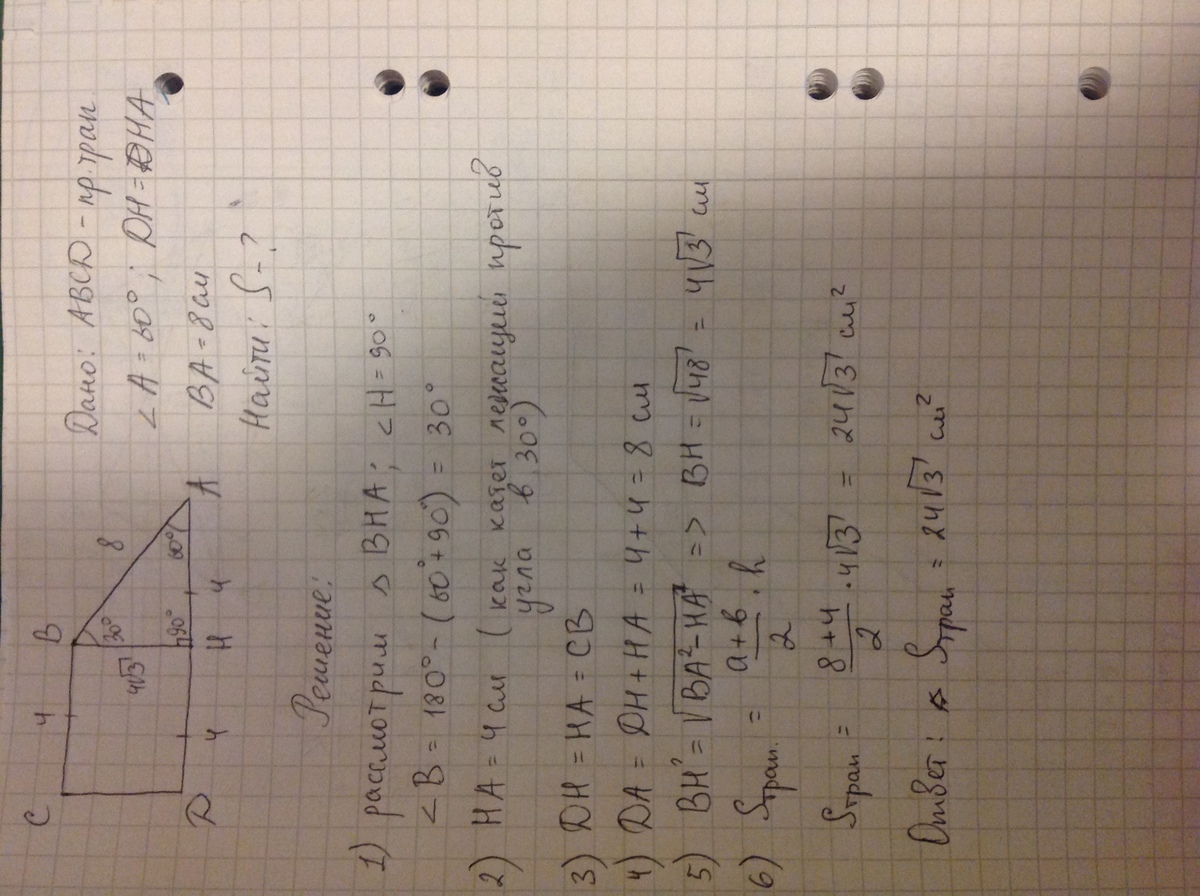 Дано: ABCD - пр. трап
∠A = 60°; DH = HA
BA = 8 см
Найти: S - ?
C
B
A
D
H
4
8
4√3
30°
90°
60°
4
4
Решение:
1) рассмотрим △ BHA; ∠H = 90°
∠B = 180° - (60° + 90°) = 30°
2) HA = 4 см (как катет лежащий против
угла в 30°)
3) DH = HA = CB
4) DA = DH + HA = 4 + 4 = 8 см
5) BH² = √BA² - HA² => BH = √48 = 4√3 см
6) Sтрап. = a + b / 2 · h
Sтрап = 8 + 4 / 2 · 4√3 = 24√3 см²
Ответ: Sтрап = 24√3 см²